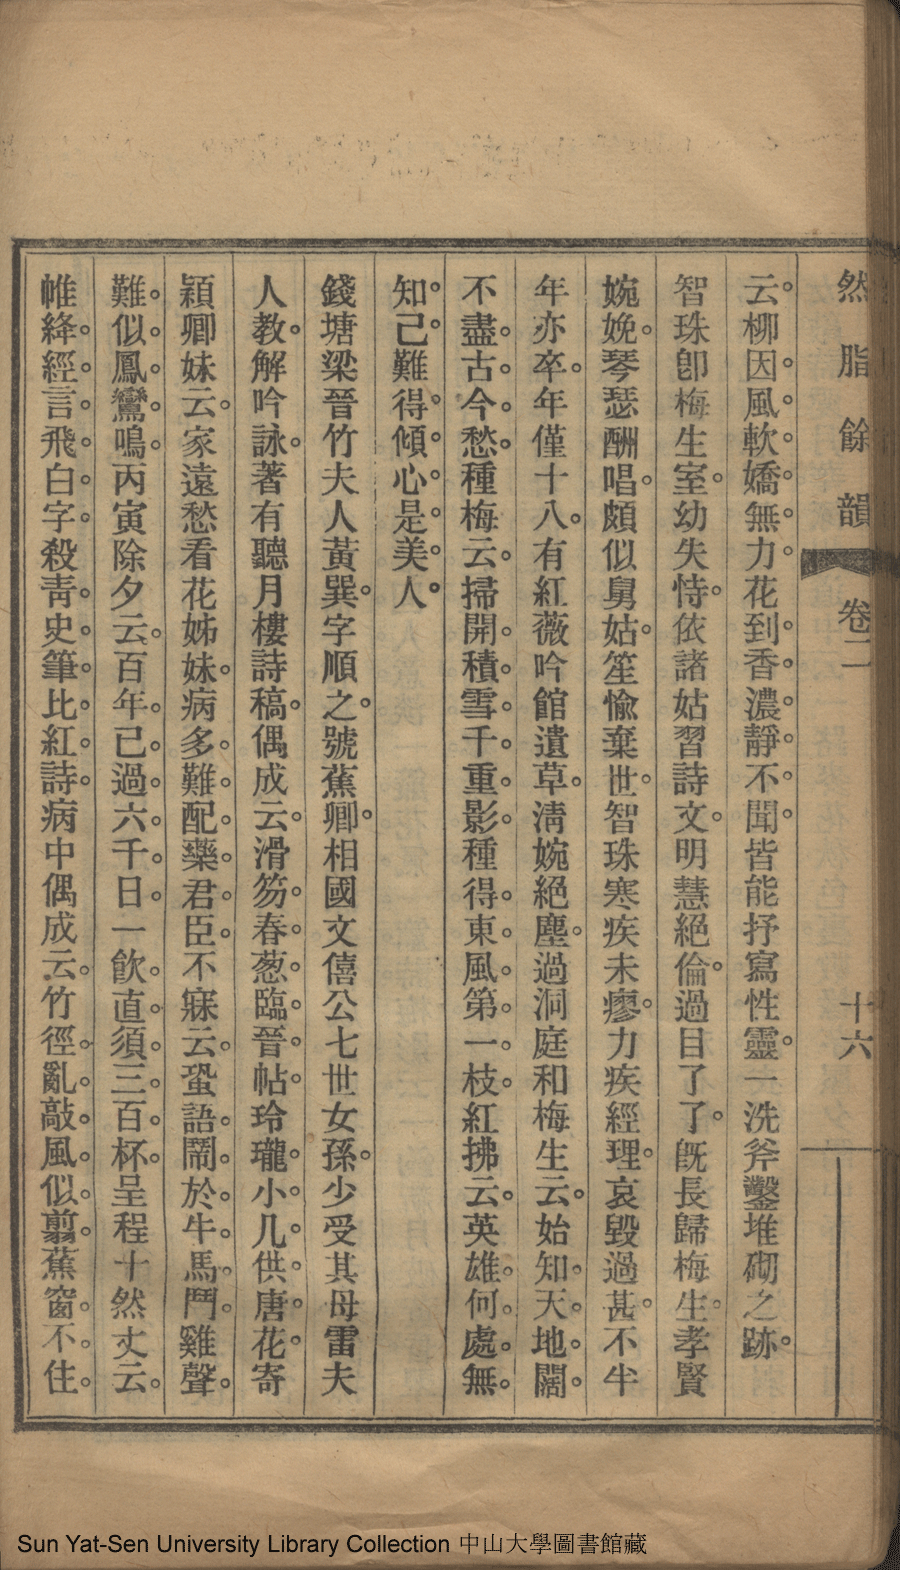 然脂餘韻 卷二 十六
云。柳因。風。軟。嬌。無。力。花到。香。濃。靜。不。聞。皆能抒寫性靈。一洗斧鑿堆砌之跡。
智珠卽梅生室。幼失恃。依諸姑習詩文。明慧絕倫。過目了了。旣長歸梅生。孝賢
婉娩。琴瑟酬唱。頗似舅姑。笙愉棄世。智珠寒疾未瘳。力疾經理。哀毀過甚。不半
年亦卒。年僅十八。有紅薇吟館遺草。淸婉絕塵。過洞庭和梅生云。始知。天。地。闊。
不。盡。古。今。愁。種梅云。掃開。積。雪。千。重。影。種得。東。風。第。一。枝。紅拂云。英雄。何。處。無。
知。己。難得。傾。心。是。美。人。
錢塘梁晉竹夫人黃巽。字順之。號蕉卿。相國文僖公七世女孫。少受其母雷夫
人教。解吟詠。著有聽月樓詩稿。偶成云。滑笏。春。葱。臨。晉。帖。玲瓏。小。几。供。唐。花。寄
穎卿妹云。家遠愁看花姊妹。病多。難。配。藥。君。臣。不寐云。蛩語。鬧。於。牛。馬。鬥。雞聲。
難。似。鳳。鸞。鳴。丙寅除夕云。百年。已。過。六。千。日。一飲。直。須。三。百。杯。呈程十然丈云。
帷絳。經。言。飛。白。字。殺青。史。筆。比。紅。詩。病中偶成云。竹徑。亂。敲。風。似。翦。蕉窗。不。住。
Sun Yat-Sen University Library Collection 中山大學圖書館藏